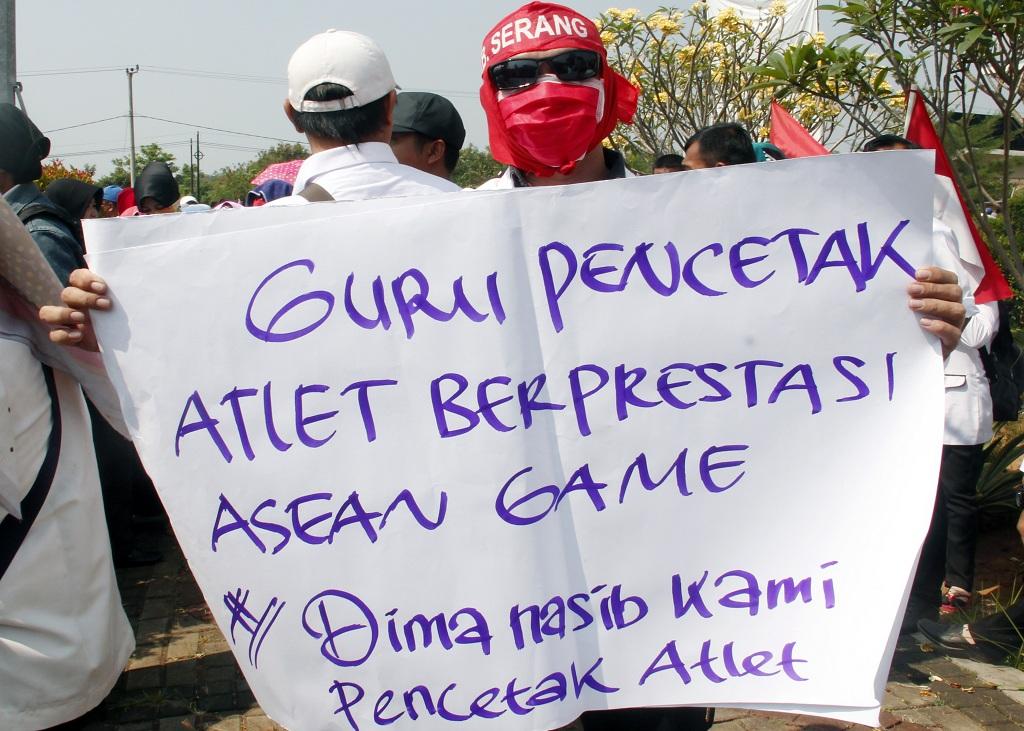 B. SERANG
GURU PENCETAK
ATLET BERPRESTASI
ASEAN GAME
*// Dima nasib Kami
Pencetak Atlet